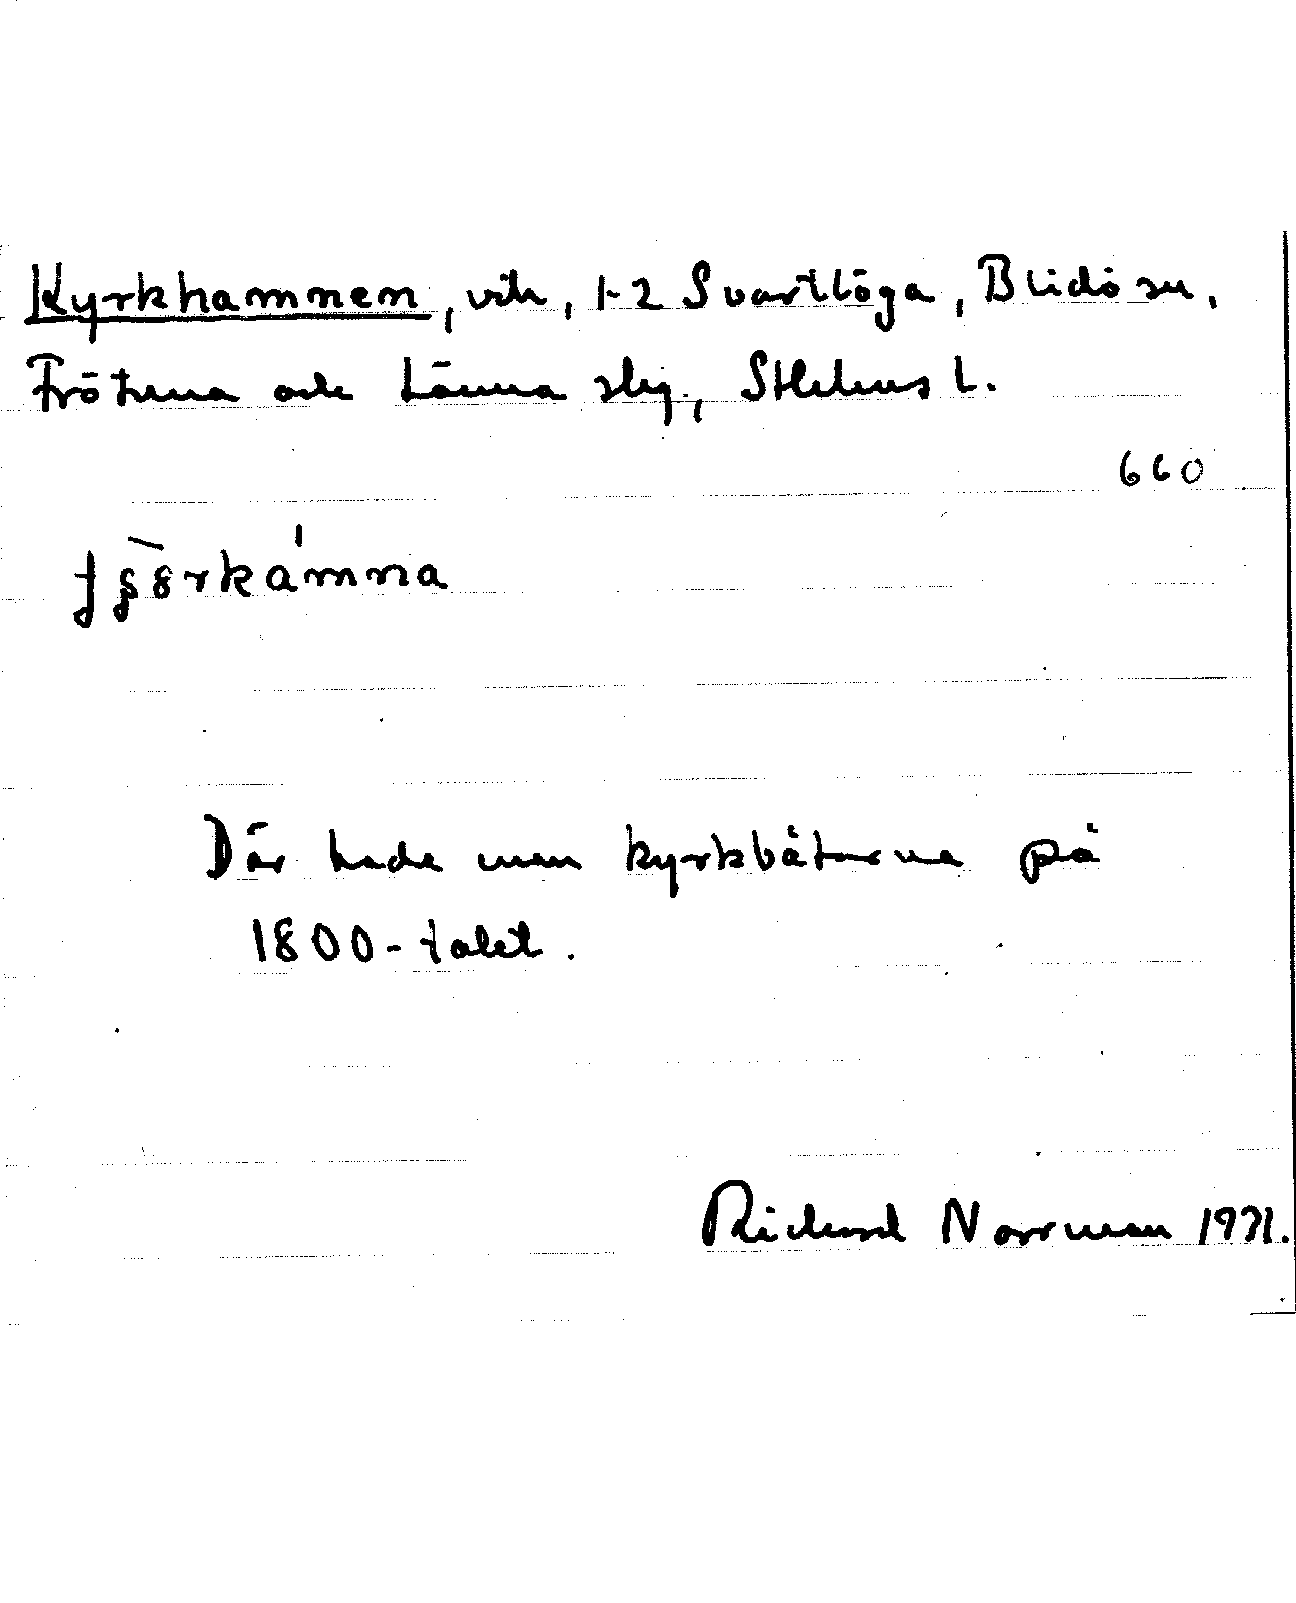 Kyrkhamnen, vik, 1-2 Svartlöga, Blidö sn,
Frötuna och Länna slg., Sthlms l.
660
Där hade man kyrkbåtarna på
1800-talet.
Richard Norrman 1971.